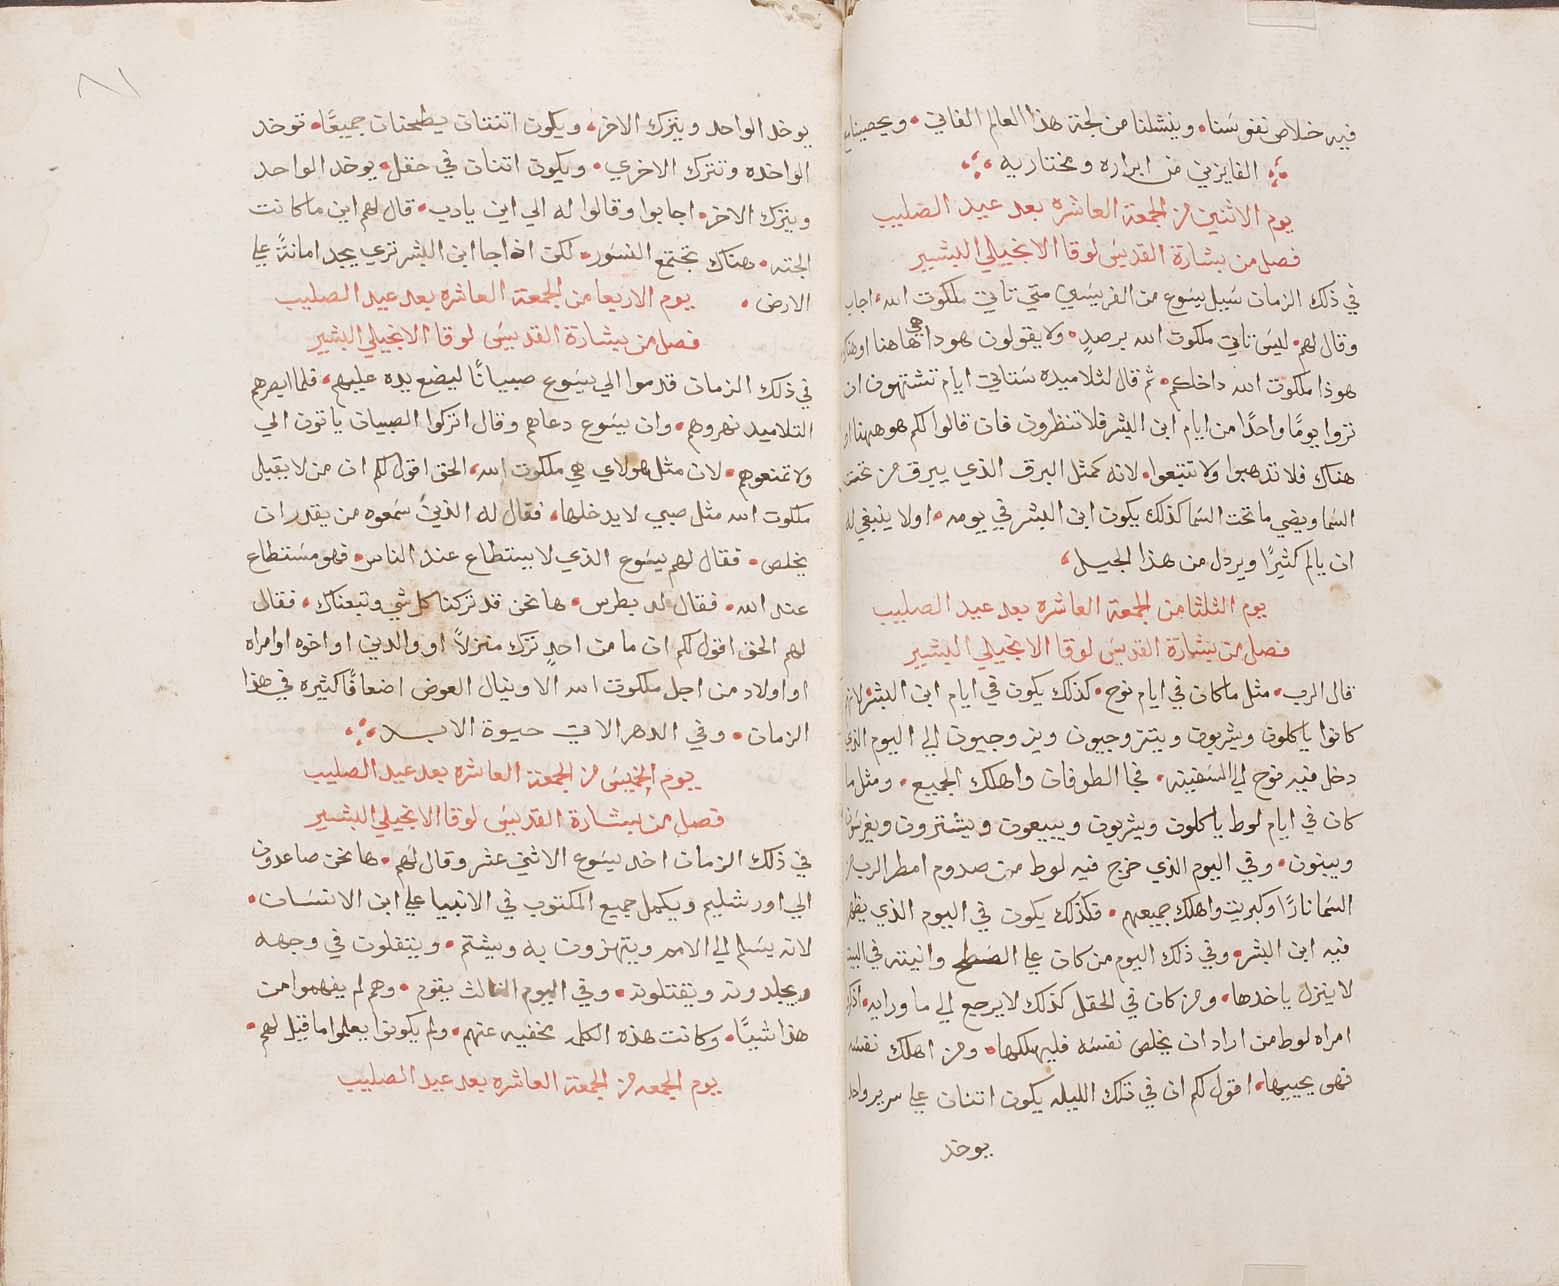 فيه خلاص نفوسنا. وينشلنا من لجة هذا العالم الفاني. ويحصينا مع
الفايزين من ابراره ومختاريه
يوم الاثنين من الجمعة العاشره بعد عيد الصليب
فصل من بشارة القديس لوقا الانجيلي البشير
في ذلك الزمان سيل يسوع من الفريسيين متي تاتي ملكوت الله. اجاب
وقال لهم. ليس تاتي ملكوت الله برصدٍ. ولا يقولون هوذا هي هاهنا او هناك
هوذا ملكوت الله داخلكم. ثم قال لتلاميده ستاتي ايام تشتهون ان
تروا يومًا واحدًا من ايام ابن البشر فلا تنظرون فان قالوا لكم هو ههنا او
هناك فلا تدهبوا ولا تتبعوا. لانه كمثل البرق الذي يبرق من تحت
السما ويضي ما تحت السما كذلك يكون ابن البشر في يومه. اولا ينبغي له
ان يالم كثيرًا ويردل من هذا الجيل.
يوم الثلثا من الجمعة العاشره بعد عيد الصليب
فصل من بشارة القديس لوقا الانجيلي البشير
قال الرب. مثل ما كان في ايام نوح. كذلك يكون في ايام ابن البشر لانهم
كانوا ياكلون ويشربون ويتزوجون ويزوجون الي اليوم الذي
دخل فيه نوح الي السفينه. فجا الطوفان واهلك الجميع. ومثل ما
كان في ايام لوط ياكلون ويشربون ويبيعون ويشترون ويغرسون
ويبنون. وفي اليوم الذي خرج فيه لوط من صدوم امطر الرب من
السما نارًا وكبريت واهلك جميعهم. فكذلك يكون في اليوم الذي يظهر
فيه ابن البشر. وفي ذلك اليوم من كان علي السطح وانيته في البيت
لا ينزل ياخدها. ومن كان في الحقل كذلك لا يرجع الي ما ورايه. اذكروا
امراه لوط من اراد ان يخلص نفسه فليهلكها. ومن اهلك نفسه
فهو يحييها. اقول لكم ان في تلك الليله يكون اتنان علي سرير واحد
يوخد
يوخد الواحد ويترك الاخر. ويكون اتنتان يطحنان جميعًا. توخد
الواحده وتترك الاخري. ويكون اتنان في حقل. يوخد الواحد
ويترك الاخر. اجابوا وقالوا له الي اين يارب. قال لهم اين ما كانت
الجته. هناك تجتمع النسور. لكن اذا جا ابن البشر تري يجد امانةً علي
الارض.
يوم الاربعا من الجمعة العاشره بعد عيد الصليب
فصل من بشارة القديس لوقا الانجيلي البشير
في ذلك الزمان قدموا الي يسوع صبيانًا ليضع يده عليهم. فلما ابصرهم
التلاميد نهروهم. وان يسوع دعاهم وقال اتركوا الصبيان ياتون الي
ولا تمنعوهم. لان مثل هولاي هي ملكوت الله. الحق اقول لكم ان من لا يقبل
ملكوت الله مثل صبي لا يدخلها. فقال له الذين سمعوه من يقدر ان
يخلص. فقال لهم يسوع الذي لا يستطاع عند الناس. فهو مستطاع
عند الله. فقال له بطرس. ها نحن قد تركنا كل شي وتبعناك. فقال
لهم الحق اقول لكم ان ما من احدٍ ترك منزلاً او والدين او اخوه او امراه
او اولاد من اجل ملكوت الله الا وينال العوض اضعافًا كثيره في هذا
الزمان. وفي الدهر الاتي حيوة الابد
يوم الخميس من الجمعة العاشره بعد عيد الصليب
فصل من بشارة القديس لوقا الانجيلي البشير
في ذلك الزمان اخد يسوع الاثني عشر وقال لهم. ها نحن صاعدون
الي اورشليم ويكمل جميع المكتوب في الانبيا علي ابن الانسان.
لانه يسلم الي الامم ويتهزون به ويشتم. ويتفلون في وجهه
ويجلدونه ويقتلونه. وفي اليوم الثالث يقوم. وهم لم يفهموا من
هذا شيًا. وكانت هذه الكلمه مخفيه عنهم. ولم يكونوا يعلموا ما قيل لهم.
يوم الجمعه من الجمعة العاشره بعد عيد الصليب